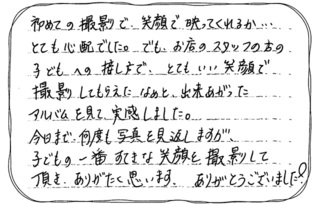 初めての撮影で、笑顔で映ってくれるか…
とても心配でした。でも、お店のスタッフの方の
子どもへの接し方で、とてもいい笑顔で
撮影してもらえたなぁと、出来あがった
アルバムを見て、実感しました。
今日まで、何度も写真を見返しますが
子どもの一番すてきな笑顔を撮影して
頂き、ありがたく思います。ありがとうございました